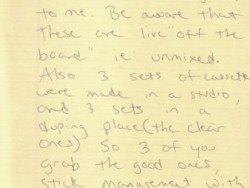 to me. Be aware that
these are live "off the
board" ie unmixed.
Also 3 sets of cassette
were made in a studio,
and 3 sets in a
duping place (the clear
ones) So 3 of you
grab the good ones,
stick management with